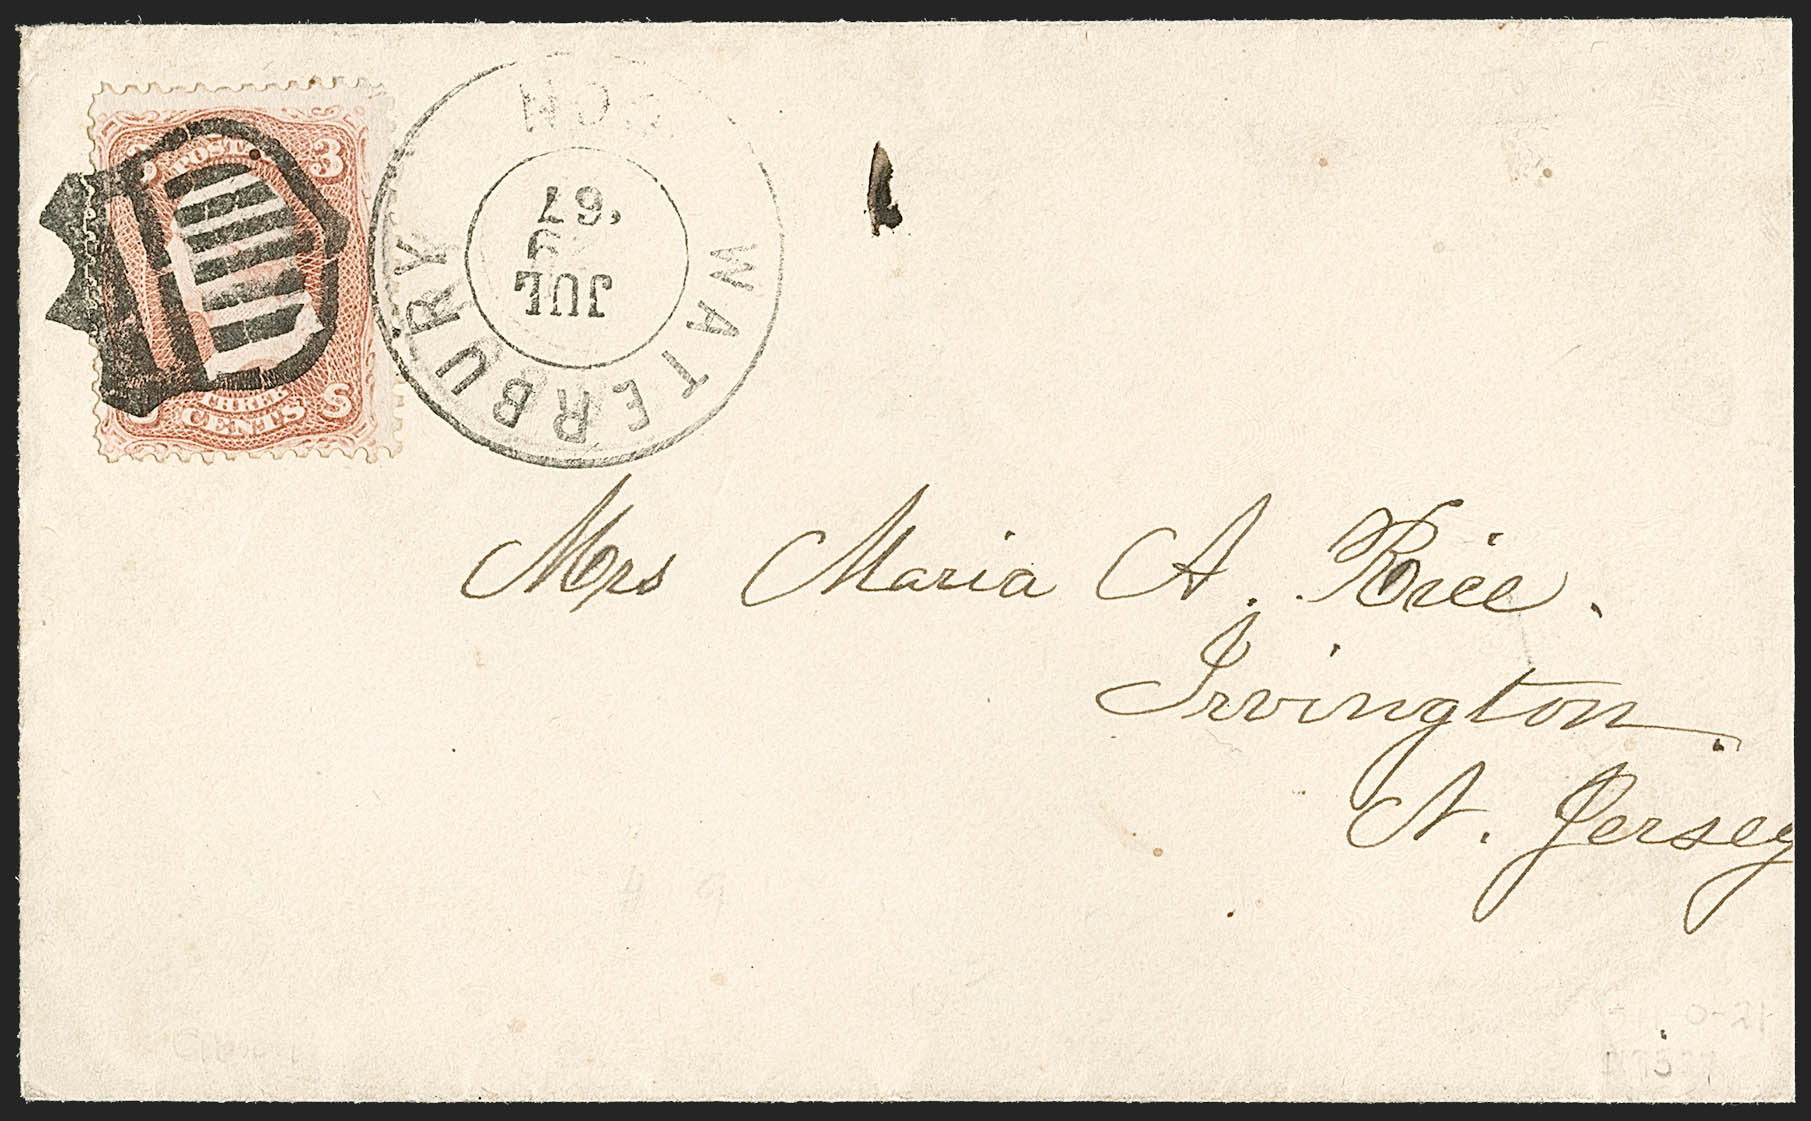 POSTA
3
THREE
CENTS
S
WATERBURY
CON
JUL
'67
Mrs Maria A. Rice.
Irvington.
N. Jersey